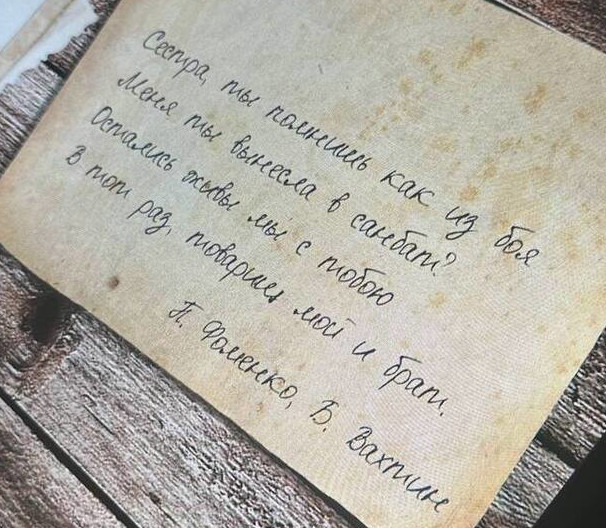 Сестра, ты помнишь как из боя
Меня ты вынесла в санбат?
Остались живы мы с тобою
В тот раз, товарищ мой и брат.
П. Фоменко, Б. Вахтин